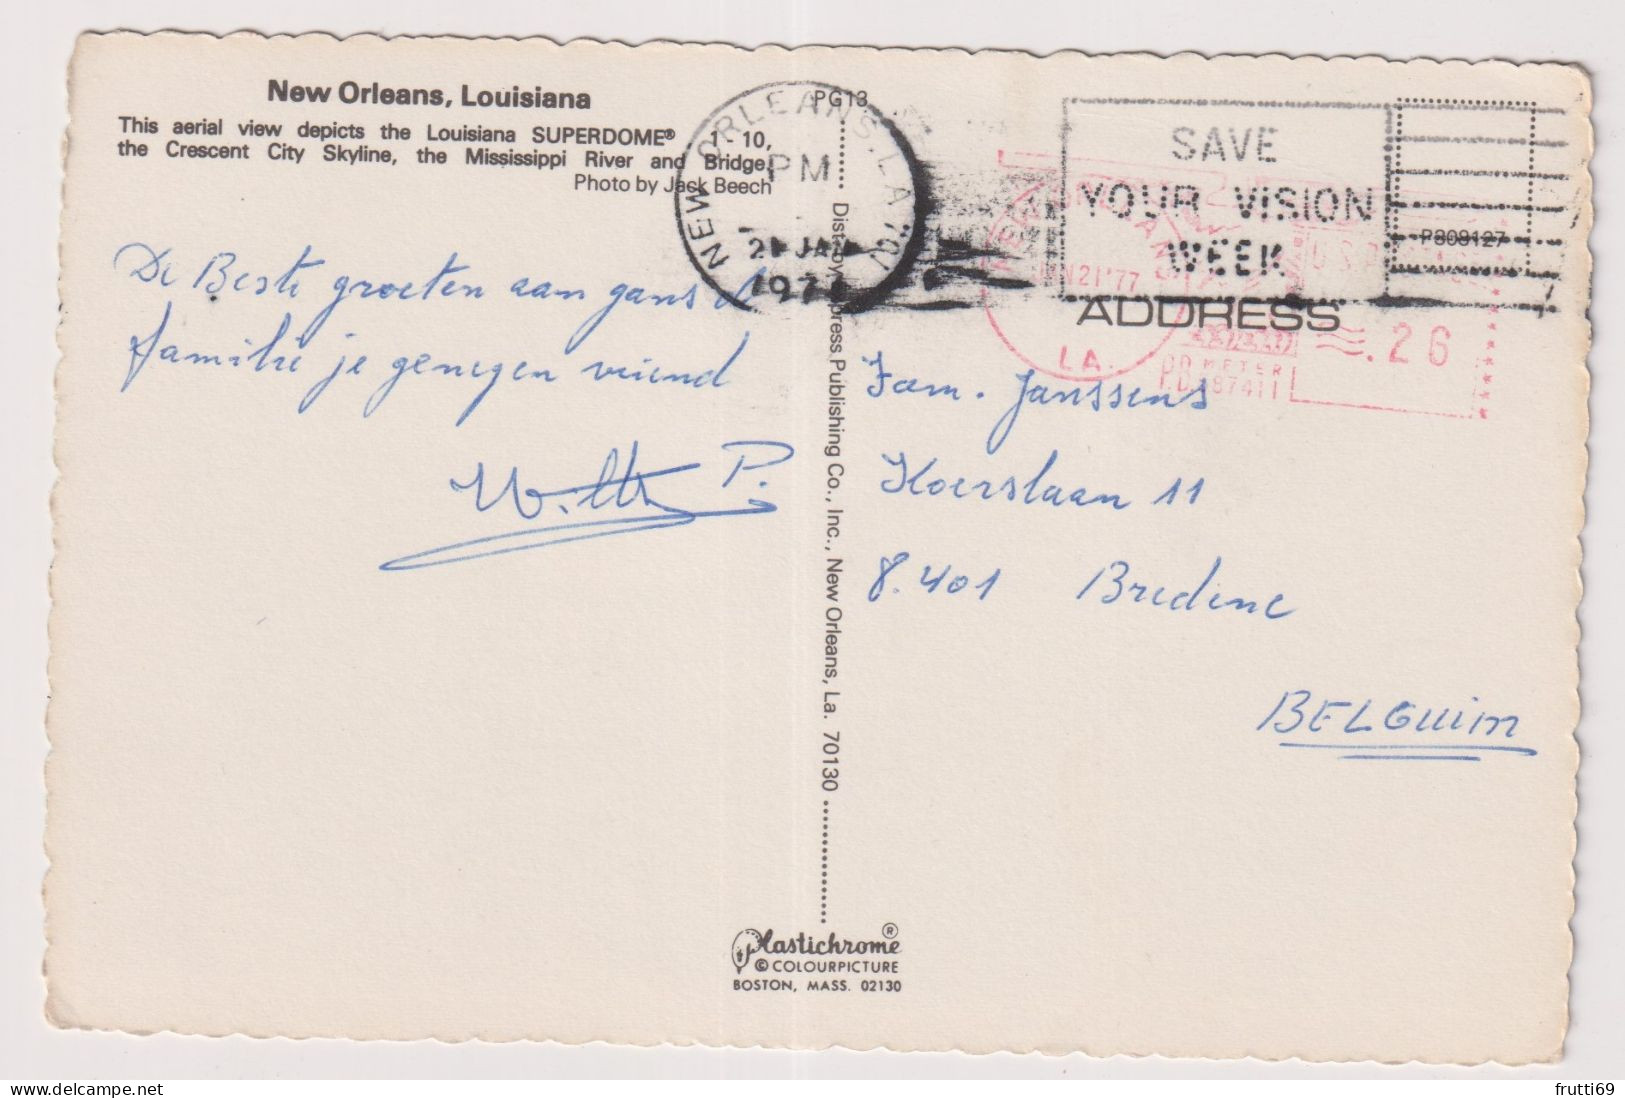 New Orleans, Louisiana
This aerial view depicts the Louisiana SUPERDOME® I - 10,
the Crescent City Skyline, the Mississippi River and Bridge.
Photo by Jack Beech
De Beste groeten aan gans de
familie je genegen vriend
P.
PG13
Dist. by Express Publishing Co., Inc., New Orleans, La. 70130
NEW ORLEANS, LA 701
PM
21 JAN
1977
SAVE
YOUR VISION
WEEK
P308127
NEW ORLEANS
JAN 21 '77
LA.
U.S.
.26
METER
ADDRESS
Fam. Janssens
Koerslaan 11
8.401 Bredene
BELGuim
Plastichrome®
© COLOURPICTURE
BOSTON, MASS. 02130
frutti69